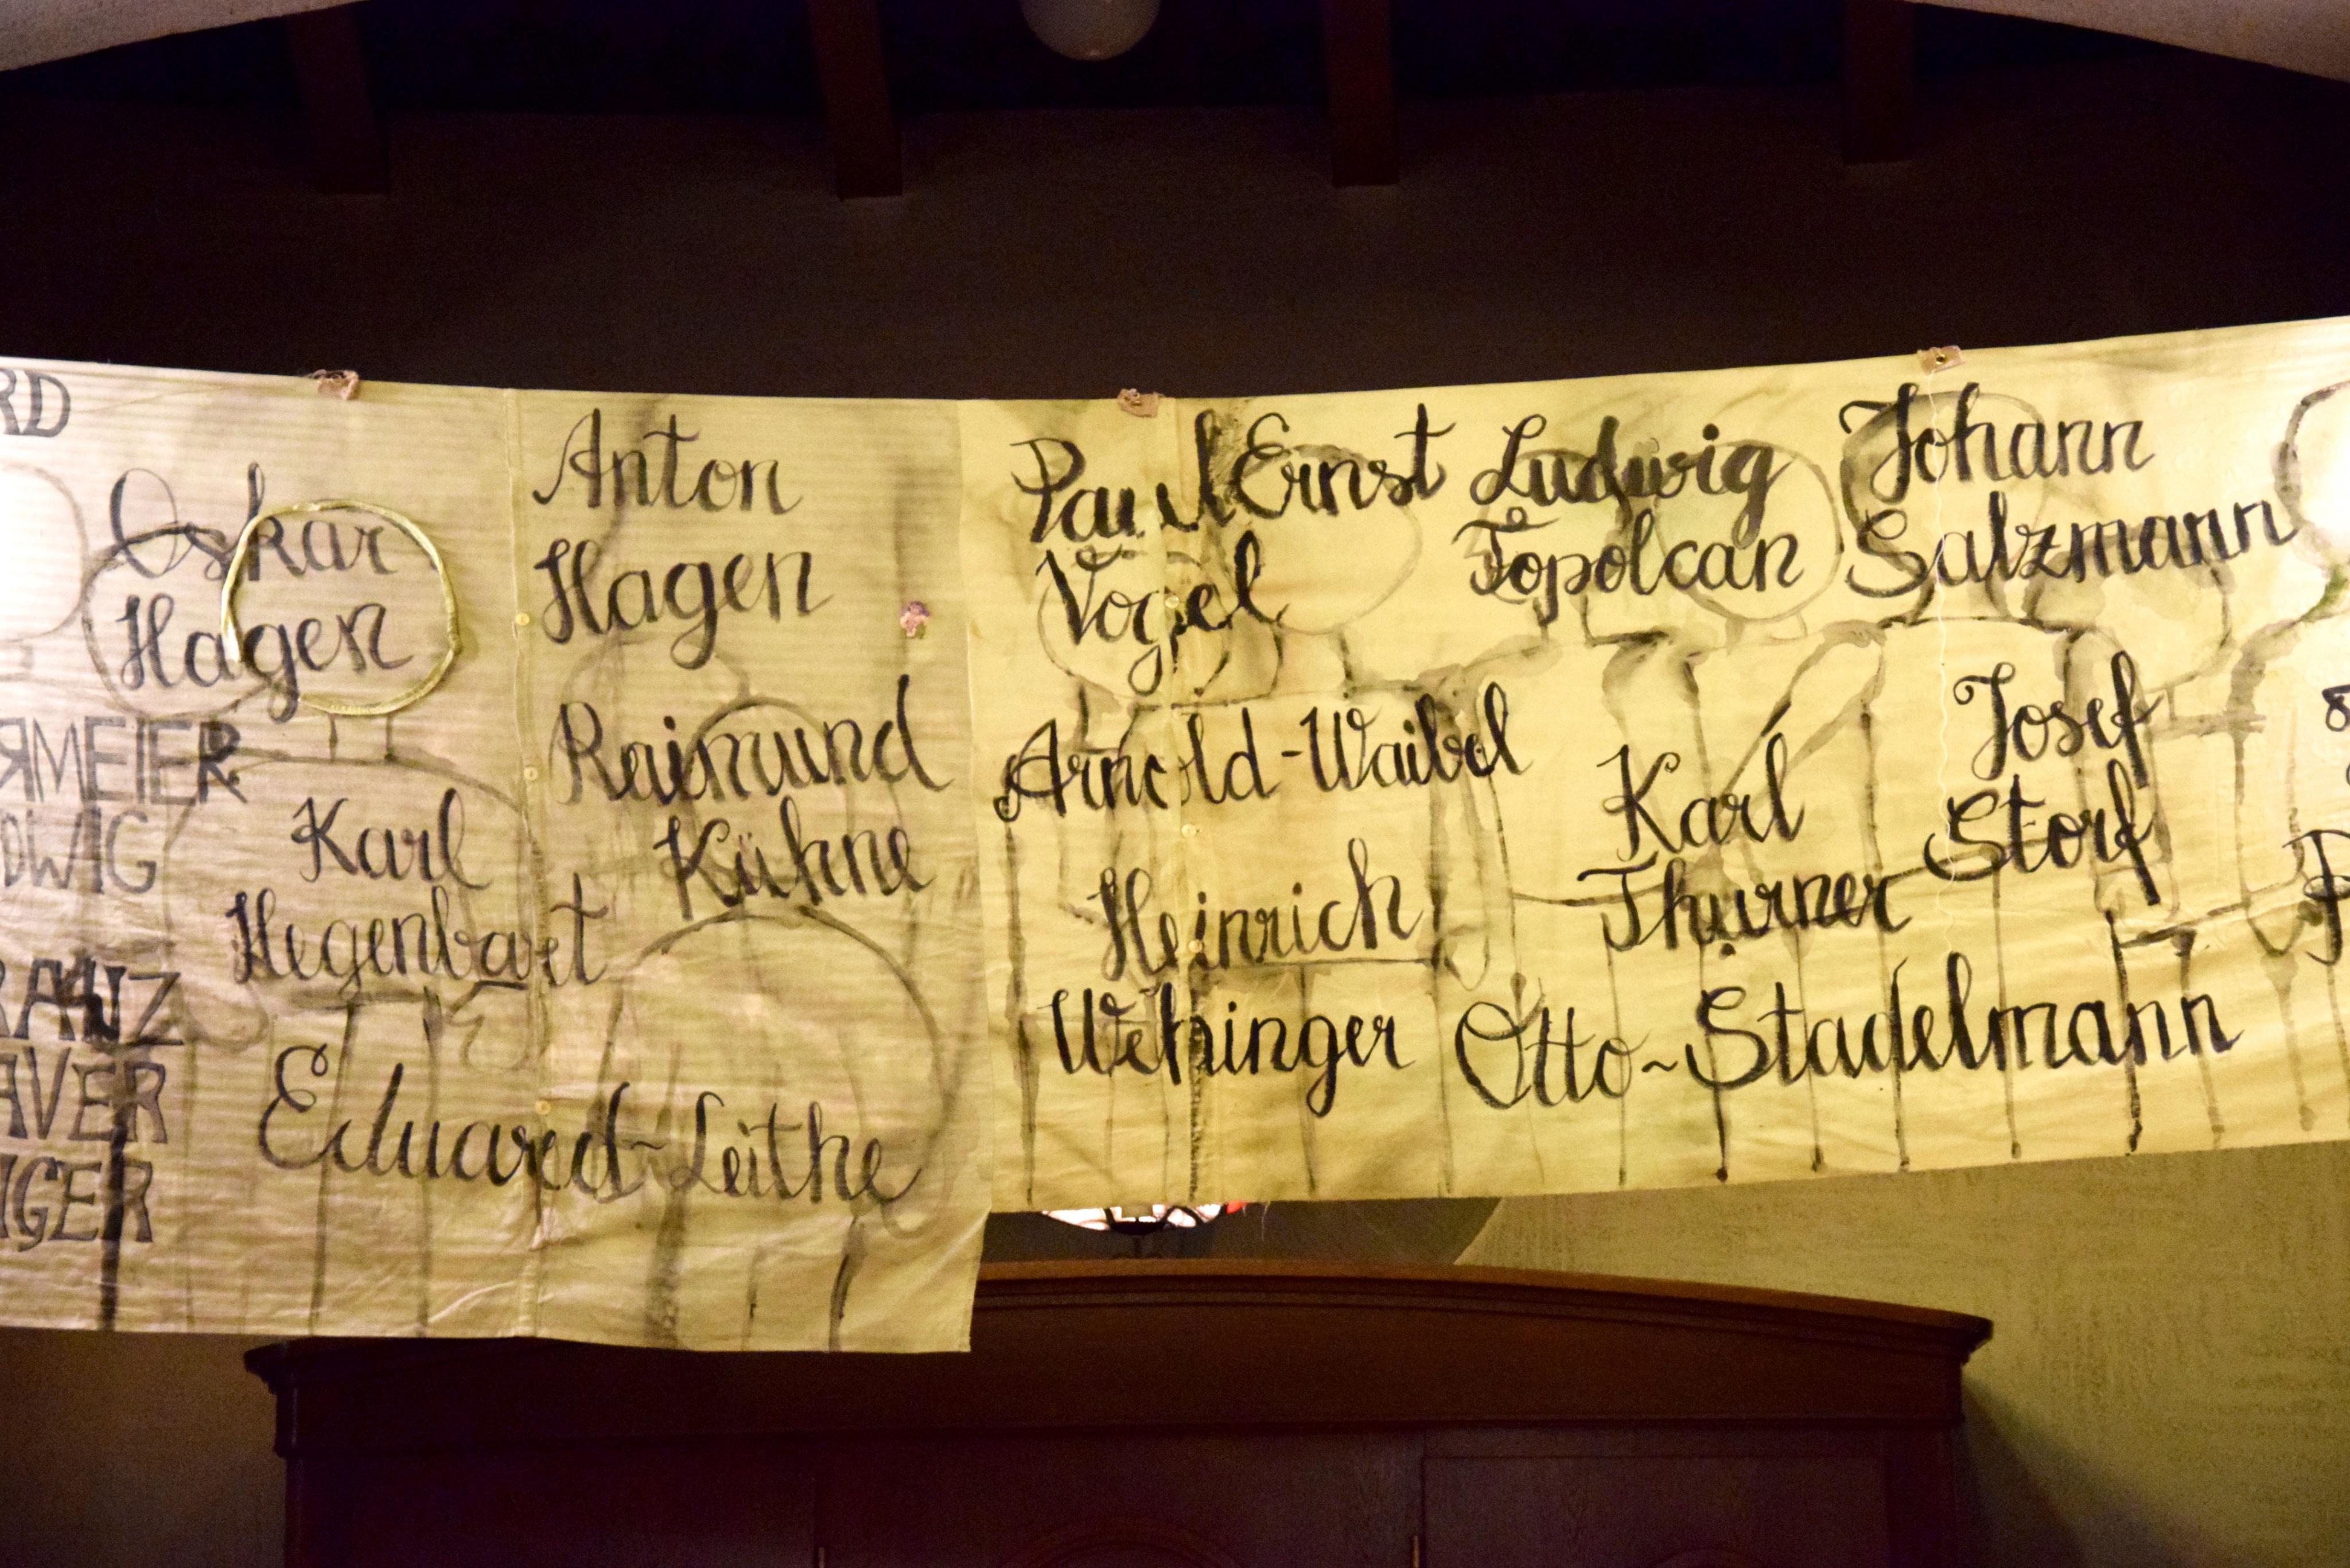 Oskar
Hagen
Karl
Hegenbart
Eduard-Leithe
Anton
Hagen
Raimund
Kühne
Paul Ernst
Vogel
Arnold-Waibel
Heinrich
Wehinger
Ludwig
Topolcan
Karl
Thurner
Otto-Stadelmann
Johann
Salzmann
Josef
Storf